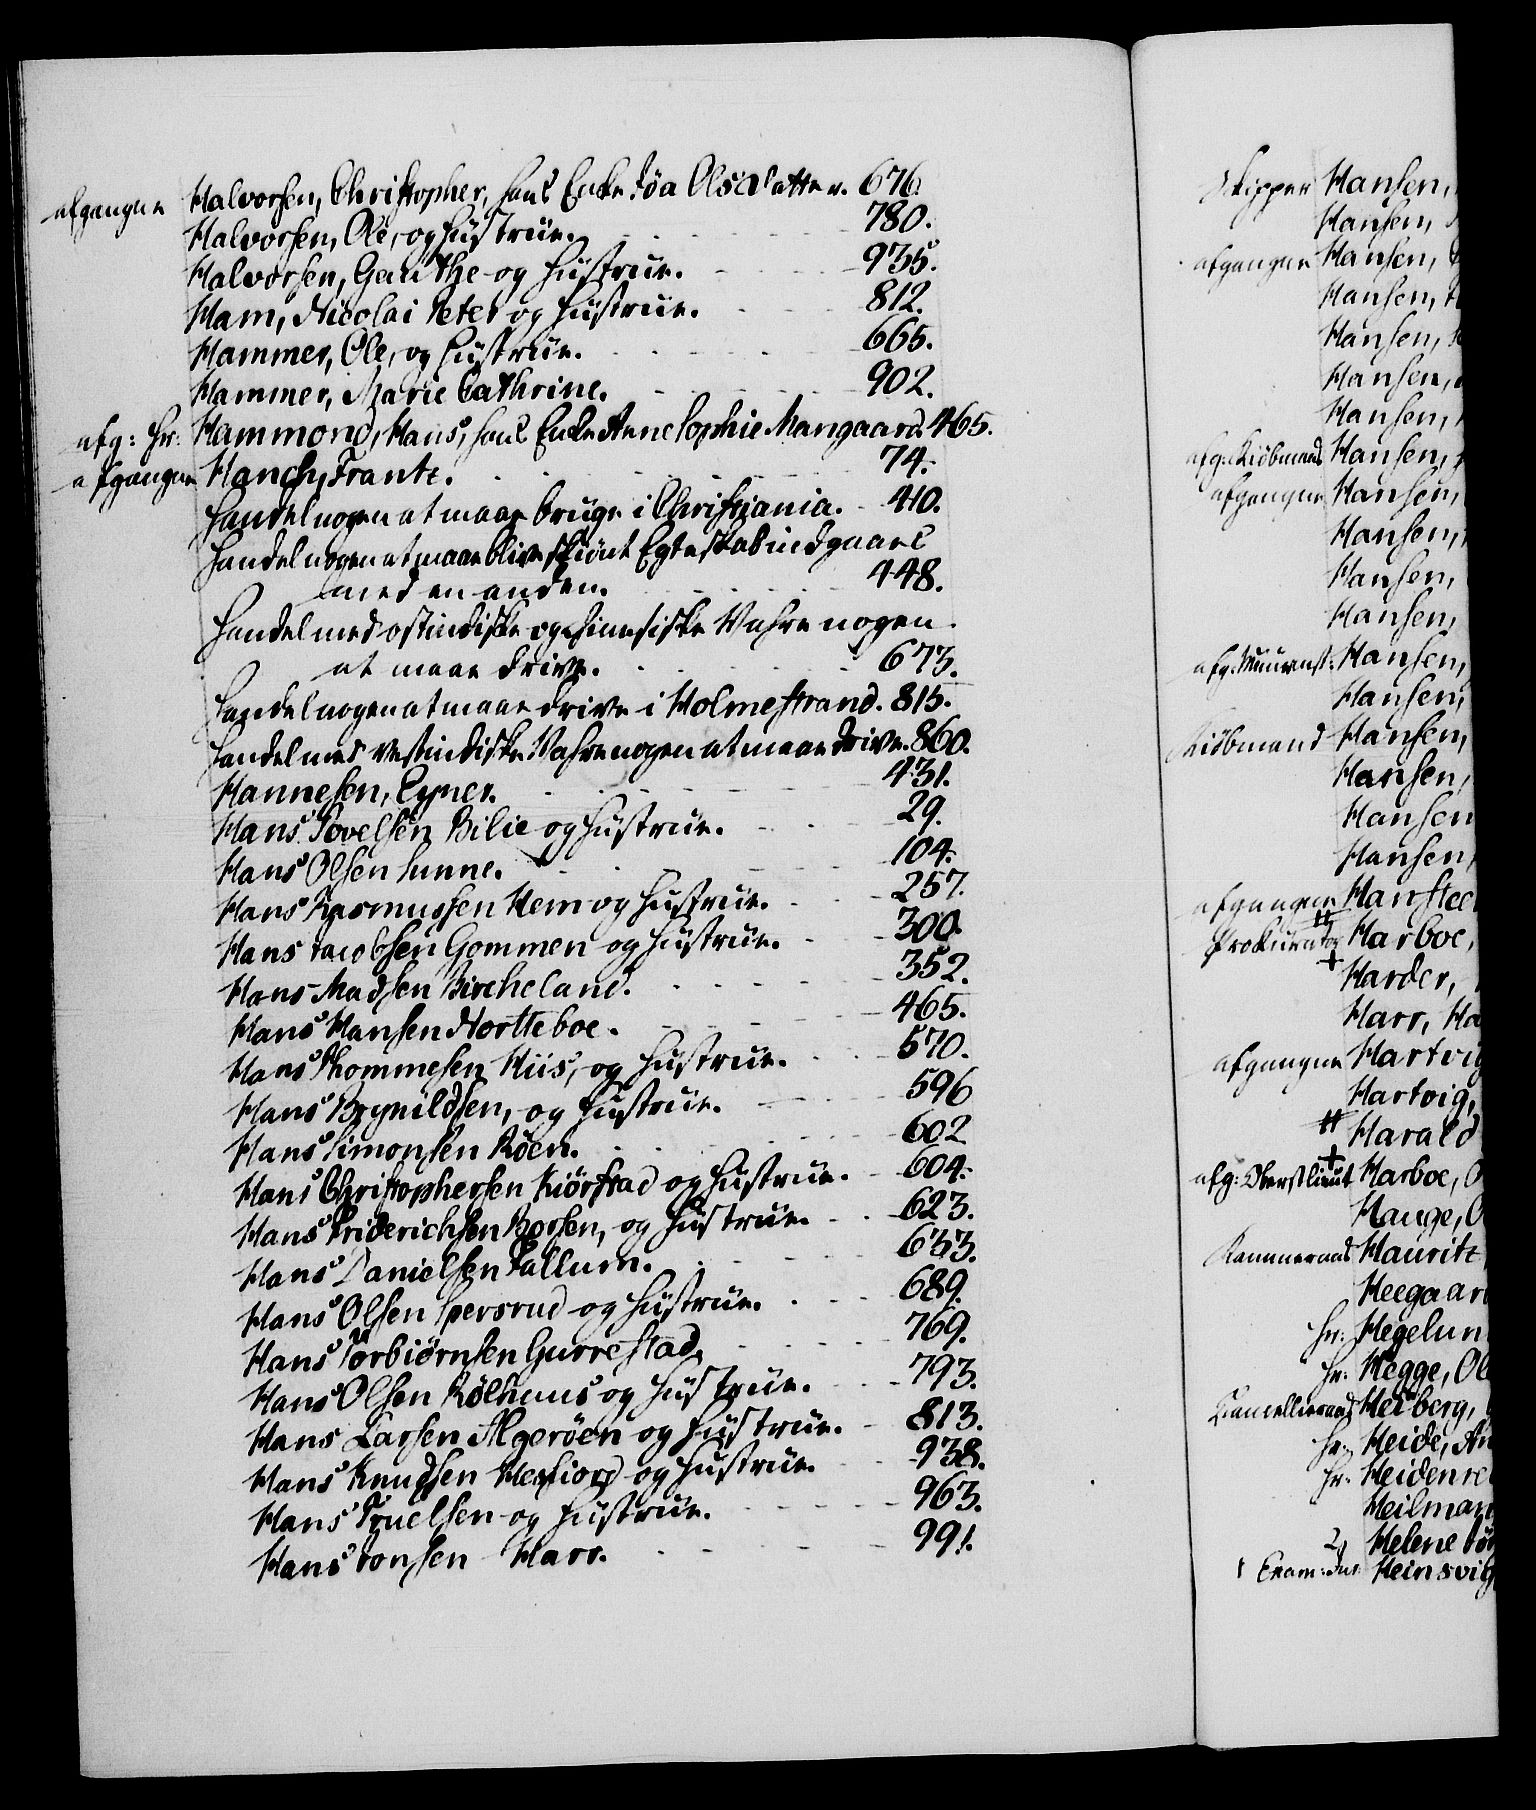 afgangne Halvorsen, Christopher, hans Enke Söa Olsdatter. 676.
Halvorsen, Ole, og Hustrue. 780.
Halvorsen, Gauthe og Hustrue. 935.
Ham, Nicolai Peter og Hustrue. 812.
Hammer, Ole, og Hustrue. 665.
Hammer, Marie Cathrine. 902.
afg: Hr: Hammond, Hans, hans Enke Anne Sophie Mangaard. 465.
afgangne Hanch, Frantz. 74.
Handel nogen at maae bruge i Christiania. 410.
Handel nogen at maae blive skiönt Egteskab indgaaes
med en anden. 448.
Handel med ostindiske og chinesiske Vahre nogen
at maae drive. 673.
Handel nogen at maae drive i Holmestrand. 815.
Handel med vestindiske Vahre nogen at maae drive. 860.
Hannesen, Eyner. 431.
Hans Povelsen Bilie og Hustrue. 29.
Hans Olsen Sunne. 104.
Hans Rasmussen Hem og Hustrue. 257.
Hans Jacobsen Gommen og Hustrue. 300.
Hans Madsen Bircheland. 352.
Hans Hansen Nortteboe. 465.
Hans Thommesen Hiis, og Hustrue. 570.
Hans Brynildsen, og Hustrue. 596
Hans Simonsen Röen. 602
Hans Christophersen Kiörstad og Hustrue. 604.
Hans Friderichsen Borsen, og Hustrue. 623.
Hans Danielsen Fallum. 633.
Hans Olsen Spersrud og Hustrue. 689.
Hans Torbiörnsen Gurrestad. 769.
Hans Olsen Kölhuus og Hustrue. 793.
Hans Larsen Algeröen og Hustrue. 813.
Hans Knudsen Hexfiord og Hustrue. 938.
Hans Truelsen og Hustrue. 963.
Hans Jonsen Harr. 991.
Skipper Hansen,
Hansen,
afgangne Hansen,
Hansen,
Hansen,
Hansen,
Hansen,
afg: Kiöbmand Hansen,
afgangne Hansen,
Hansen,
Hansen,
Hansen,
afg: Muurmst: Hansen,
Hansen,
Kiöbmand Hansen,
Hansen,
Hansen
Hansen,
afgangne Hanstee
Prokurator Harboe,
Harder,
Harr, Ha
afgangne Hartvig
Hartvig,
Harald
afg: Oberstlieut Harboe, O
Hauge, O
Kammerraad Hauritz
Heegaar
Hr: Hegelun
Hr: Hegge, Ol
Kancellieraad Heiberg,
Hr: Heide, An
Hr: Heidenre
Heilman
2, Helene Jör
1 Exam: Jur: Heinsvig